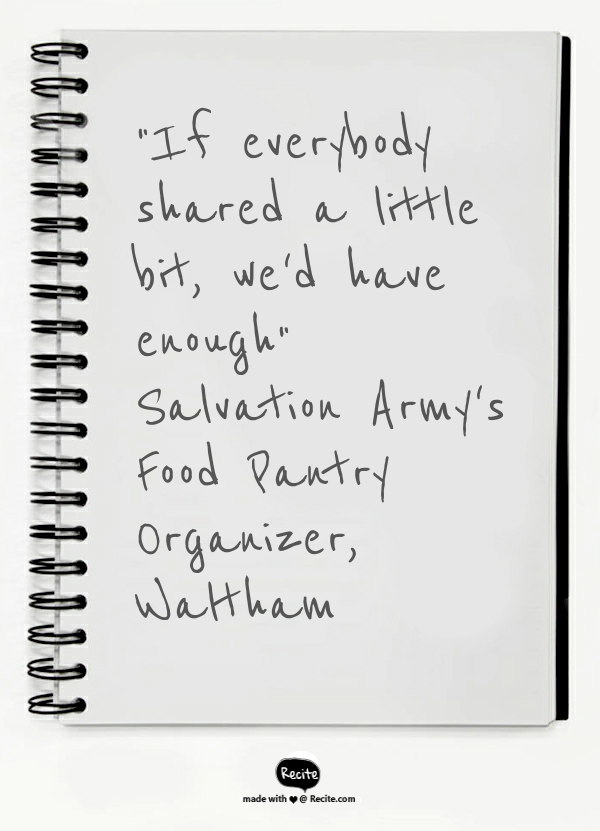 "If everybody
shared a little
bit, we'd have
enough"
Salvation Army's
Food Pantry
Organizer,
Waltham
Recite
made with ❤ @ Recite.com